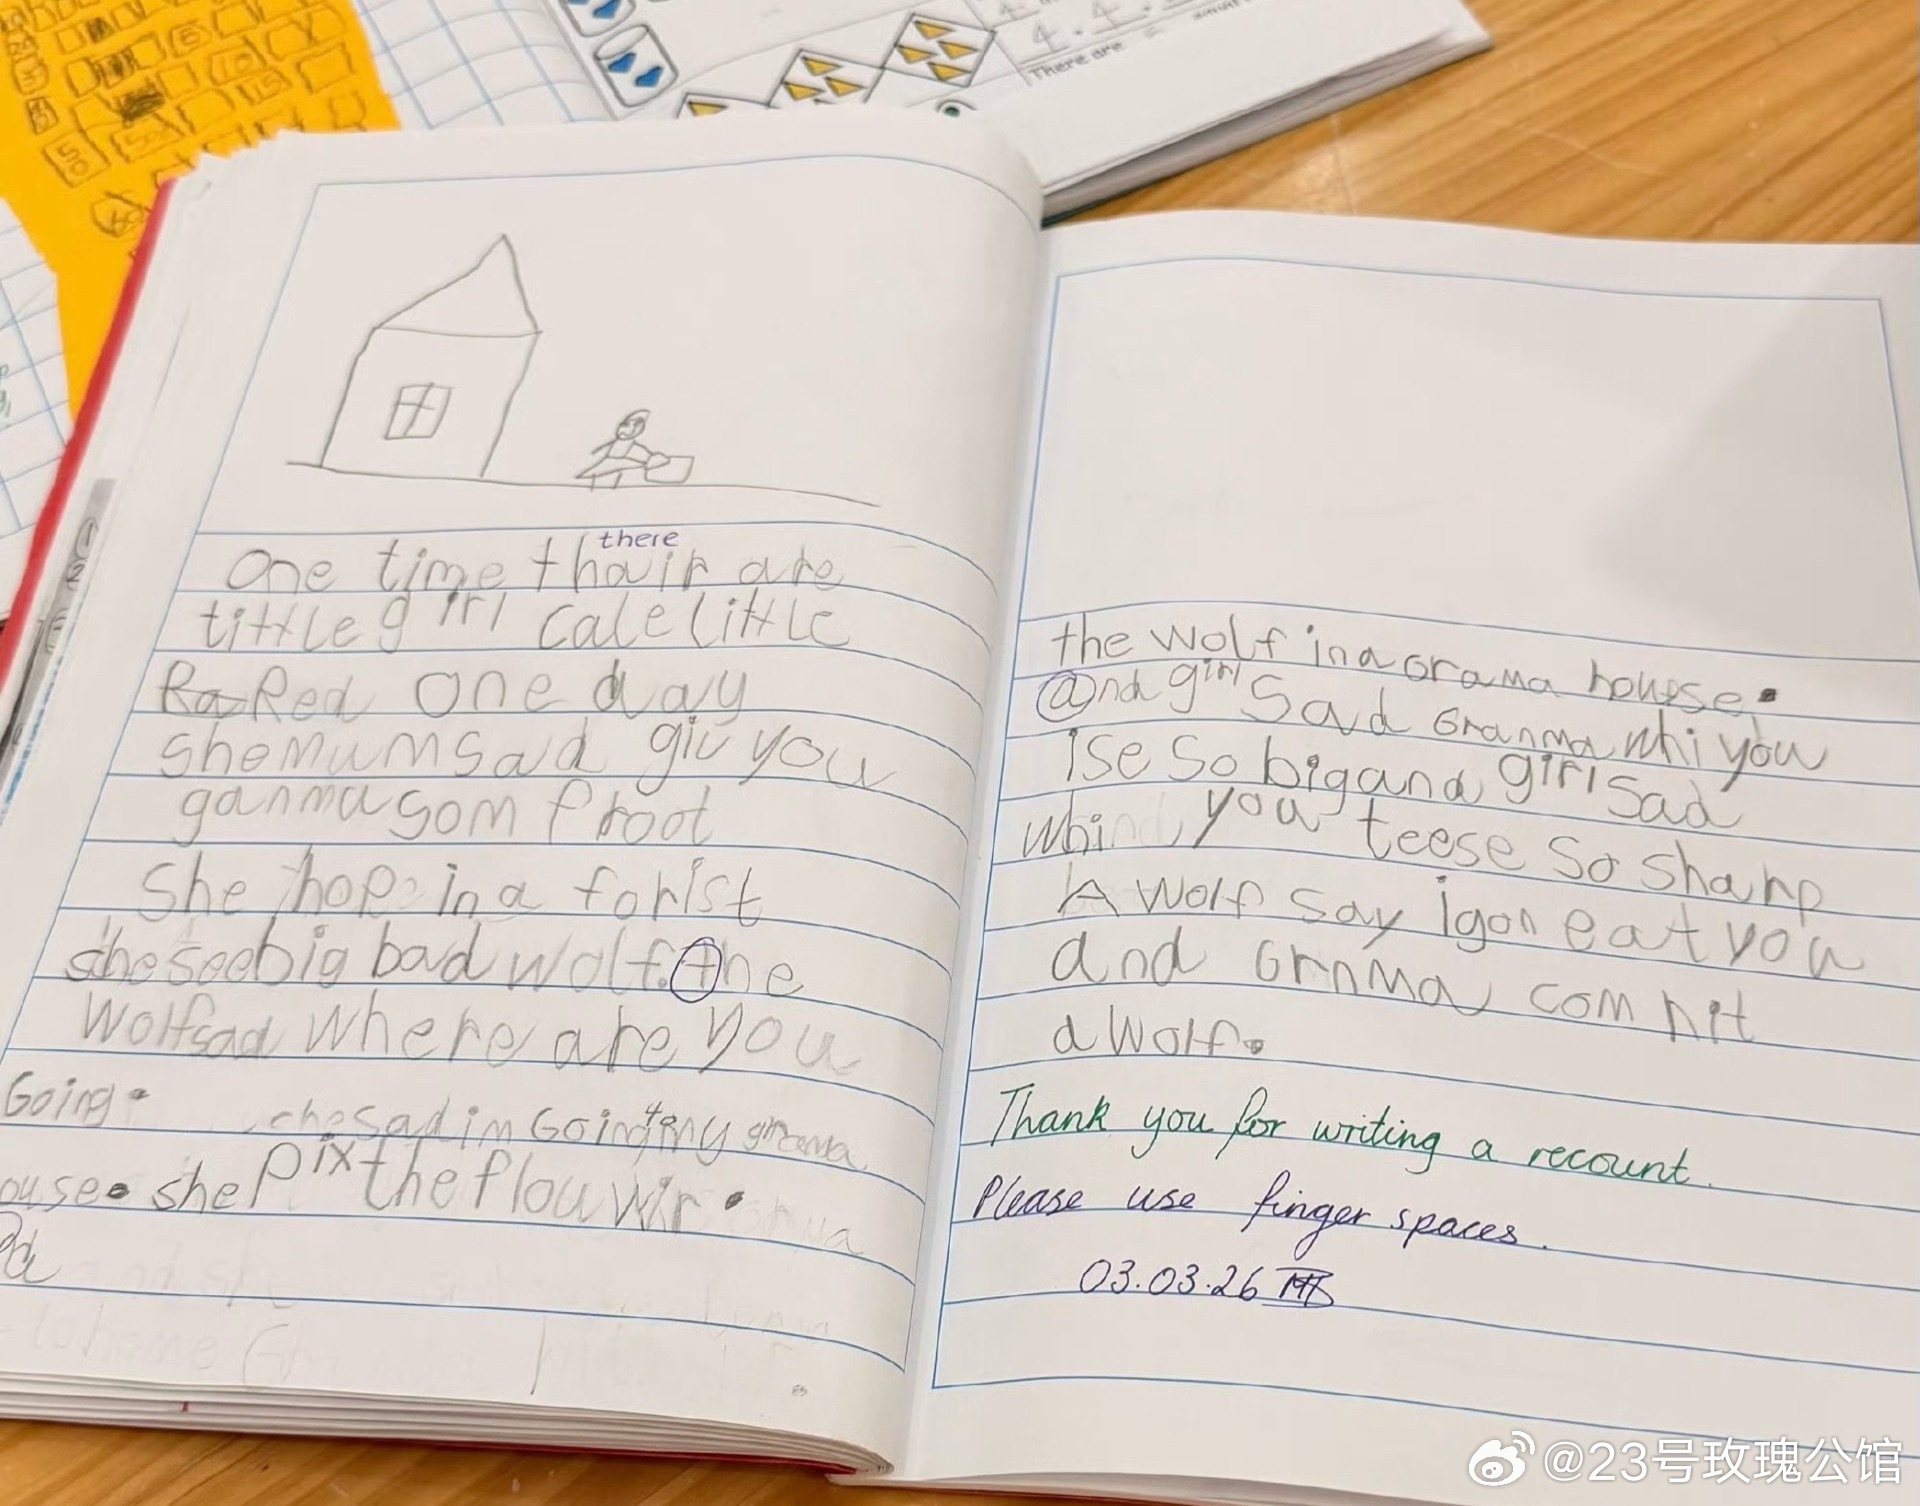 there
One time thair are
tittle girl cale little
Ra Red one day
she mum sad giv you
ganma som froot
She hop in a forist
she see big bad wolf. the
Wolf sad where are you
Going.
she sad im Going to my grama
ouse. she pix the flouwir.
the wolf in a Grama house.
and girl Sad Granma whi you
ise so big and girl sad
whi you teese so sharp
A wolf say i gon eat you
and Grnma com hit
a Wolf.
Thank you for writing a recount.
Please use finger spaces.
03.03.26
There are
@23号玫瑰公馆